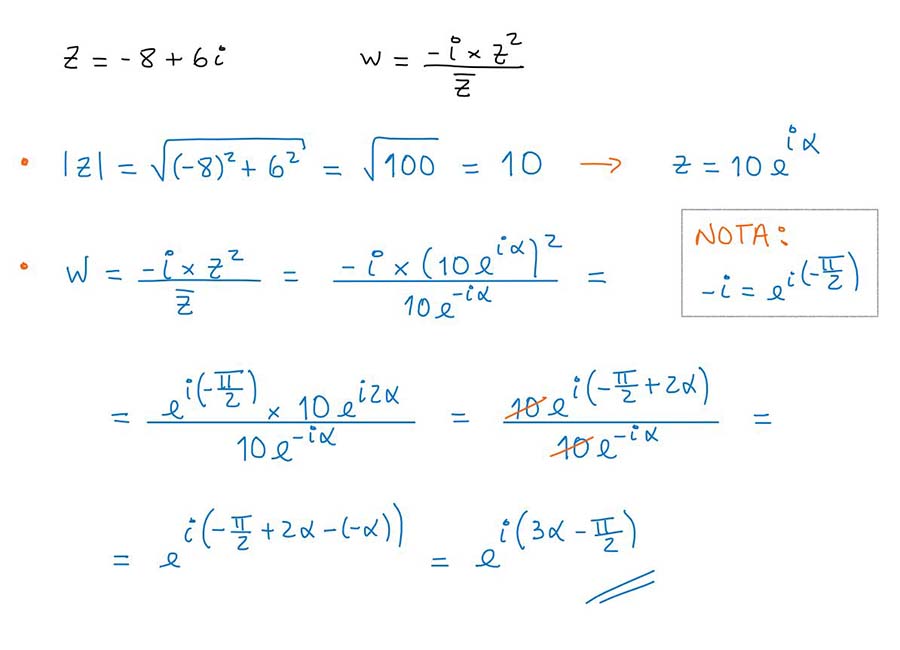 z = -8 + 6i    w = (-i × z²) / z̄
• |z| = √((-8)² + 6²) = √100 = 10 → z = 10e^(iα)
• w = (-i × z²) / z̄ = (-i × (10e^(iα))²) / (10e^(-iα)) =
NOTA:
-i = e^(i(-π/2))
= (e^(i(-π/2)) × 10e^(i2α)) / (10e^(-iα)) = (10e^(i(-π/2 + 2α))) / (10e^(-iα)) =
= e^(i(-π/2 + 2α - (-α))) = e^(i(3α - π/2))